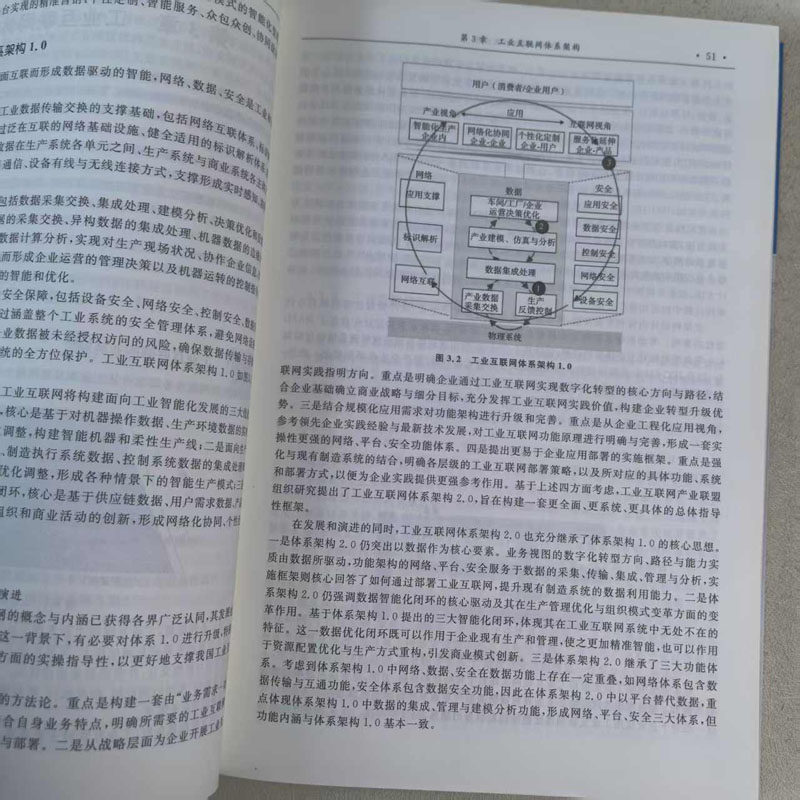 台实现的精准营销、个性定制、智能服务、众包众创、协同
模式的智能化
系架构1.0
面互联而形成数据驱动的智能,网络、数据、安全是工业
工业数据传输交换的支撑基础,包括网络互联体系、标
过泛在互联的网络基础设施、健全适用的标识解析体系
数据在生产系统各单元之间、生产系统与商业系统各主
通信、设备有线与无线连接方式,支撑形成实时感知
包括数据采集交换、集成处理、建模分析、决策优化
据的采集交换、异构数据的集成处理、机器数据的边
数据计算分析,实现对生产现场状况、协作企业信息
而形成企业运营的管理决策以及机器运转的控制
的智能和优化。
安全保障,包括设备安全、网络安全、控制安全、数
过涵盖整个工业系统的安全管理体系,避免网络
业数据被未经授权访问的风险,确保数据传输与
统的全方位保护。工业互联网体系架构1.0如
工业互联网将构建面向工业智能化发展的三大
,核心是基于对机器操作数据、生产环境数据的
调整,构建智能机器和柔性生产线;二是面向
、制造执行系统数据、控制系统数据的集成处理
优化调整,形成各种情景下的智能生产模式;三
闭环,核心是基于供应链数据、用户需求数据、
组织和商业活动的创新,形成网络化协同、个性
演进
网的概念与内涵已获得各界广泛认同,其发展
这一背景下,有必要对体系1.0进行升级,
方面的实操指导性,以更好地支撑我国工业
的方法论。重点是构建一套由“业务需求
合自身业务特点,明确所需要的工业互联
与部署。二是从战略层面为企业开展工业
第3章 工业互联网体系架构
·51·
用户(消费者/企业用户)
产业视角 应用 互联网视角
智能化生产 企业内
网络化协同 企业-企业
个性化定制 企业-用户
服务化延伸 企业-产品
3
网络
应用支撑
标识解析
网络互联
数据
车间/工厂/企业
运营决策优化
2
产业建模、仿真与分析
数据集成处理
1
产业数据 采集交换
生产 反馈控制
安全
应用安全
数据安全
控制安全
网络安全
设备安全
物理系统
图3.2 工业互联网体系架构1.0
联网实践指明方向。重点是明确企业通过工业互联网实现数字化转型的核心方向与路径,结
合企业基础确立商业战略与细分目标,充分发挥工业互联网实践价值,构建企业转型升级优
势。三是结合规模化应用需求对功能架构进行升级和完善。重点是从企业工程化应用视角,
参考领先企业实践经验与最新技术发展,对工业互联网功能原理进行明确与完善,形成一套实
操性更强的网络、平台、安全功能体系。四是提出更易于企业应用部署的实施框架。重点是强
化与现有制造系统的结合,明确各层级的工业互联网部署策略,以及所对应的具体功能、系统
和部署方式,以便为企业实践提供更强参考作用。基于上述四方面考虑,工业互联网产业联盟
组织研究提出了工业互联网体系架构2.0,旨在构建一套更全面、更系统、更具体的总体指导
性框架。
在发展和演进的同时,工业互联网体系架构2.0也充分继承了体系架构1.0的核心思想。
一是体系架构2.0仍突出以数据作为核心要素。业务视图的数字化转型方向、路径与能力实
质由数据所驱动,功能架构的网络、平台、安全服务于数据的采集、传输、集成、管理与分析,实
施框架则核心回答了如何通过部署工业互联网,提升现有制造系统的数据利用能力。二是体
系架构2.0仍强调数据智能化闭环的核心驱动及其在生产管理优化与组织模式变革方面的变
革作用。基于体系架构1.0提出的三大智能化闭环,体现其在工业互联网系统中无处不在的
特征。这一数据优化闭环既可以作用于企业现有生产和管理,使之更加精准智能,也可以作用
于资源配置优化与生产方式重构,引发商业模式创新。三是体系架构2.0继承了三大功能体
系。考虑到体系架构1.0中网络、数据、安全在数据功能上存在一定重叠,如网络体系包含数
据传输与互通功能,安全体系包含数据安全功能,因此在体系架构2.0中以平台替代数据,重
点体现体系架构1.0中数据的集成、管理与建模分析功能,形成网络、平台、安全三大体系,但
功能内涵与体系架构1.0基本一致。